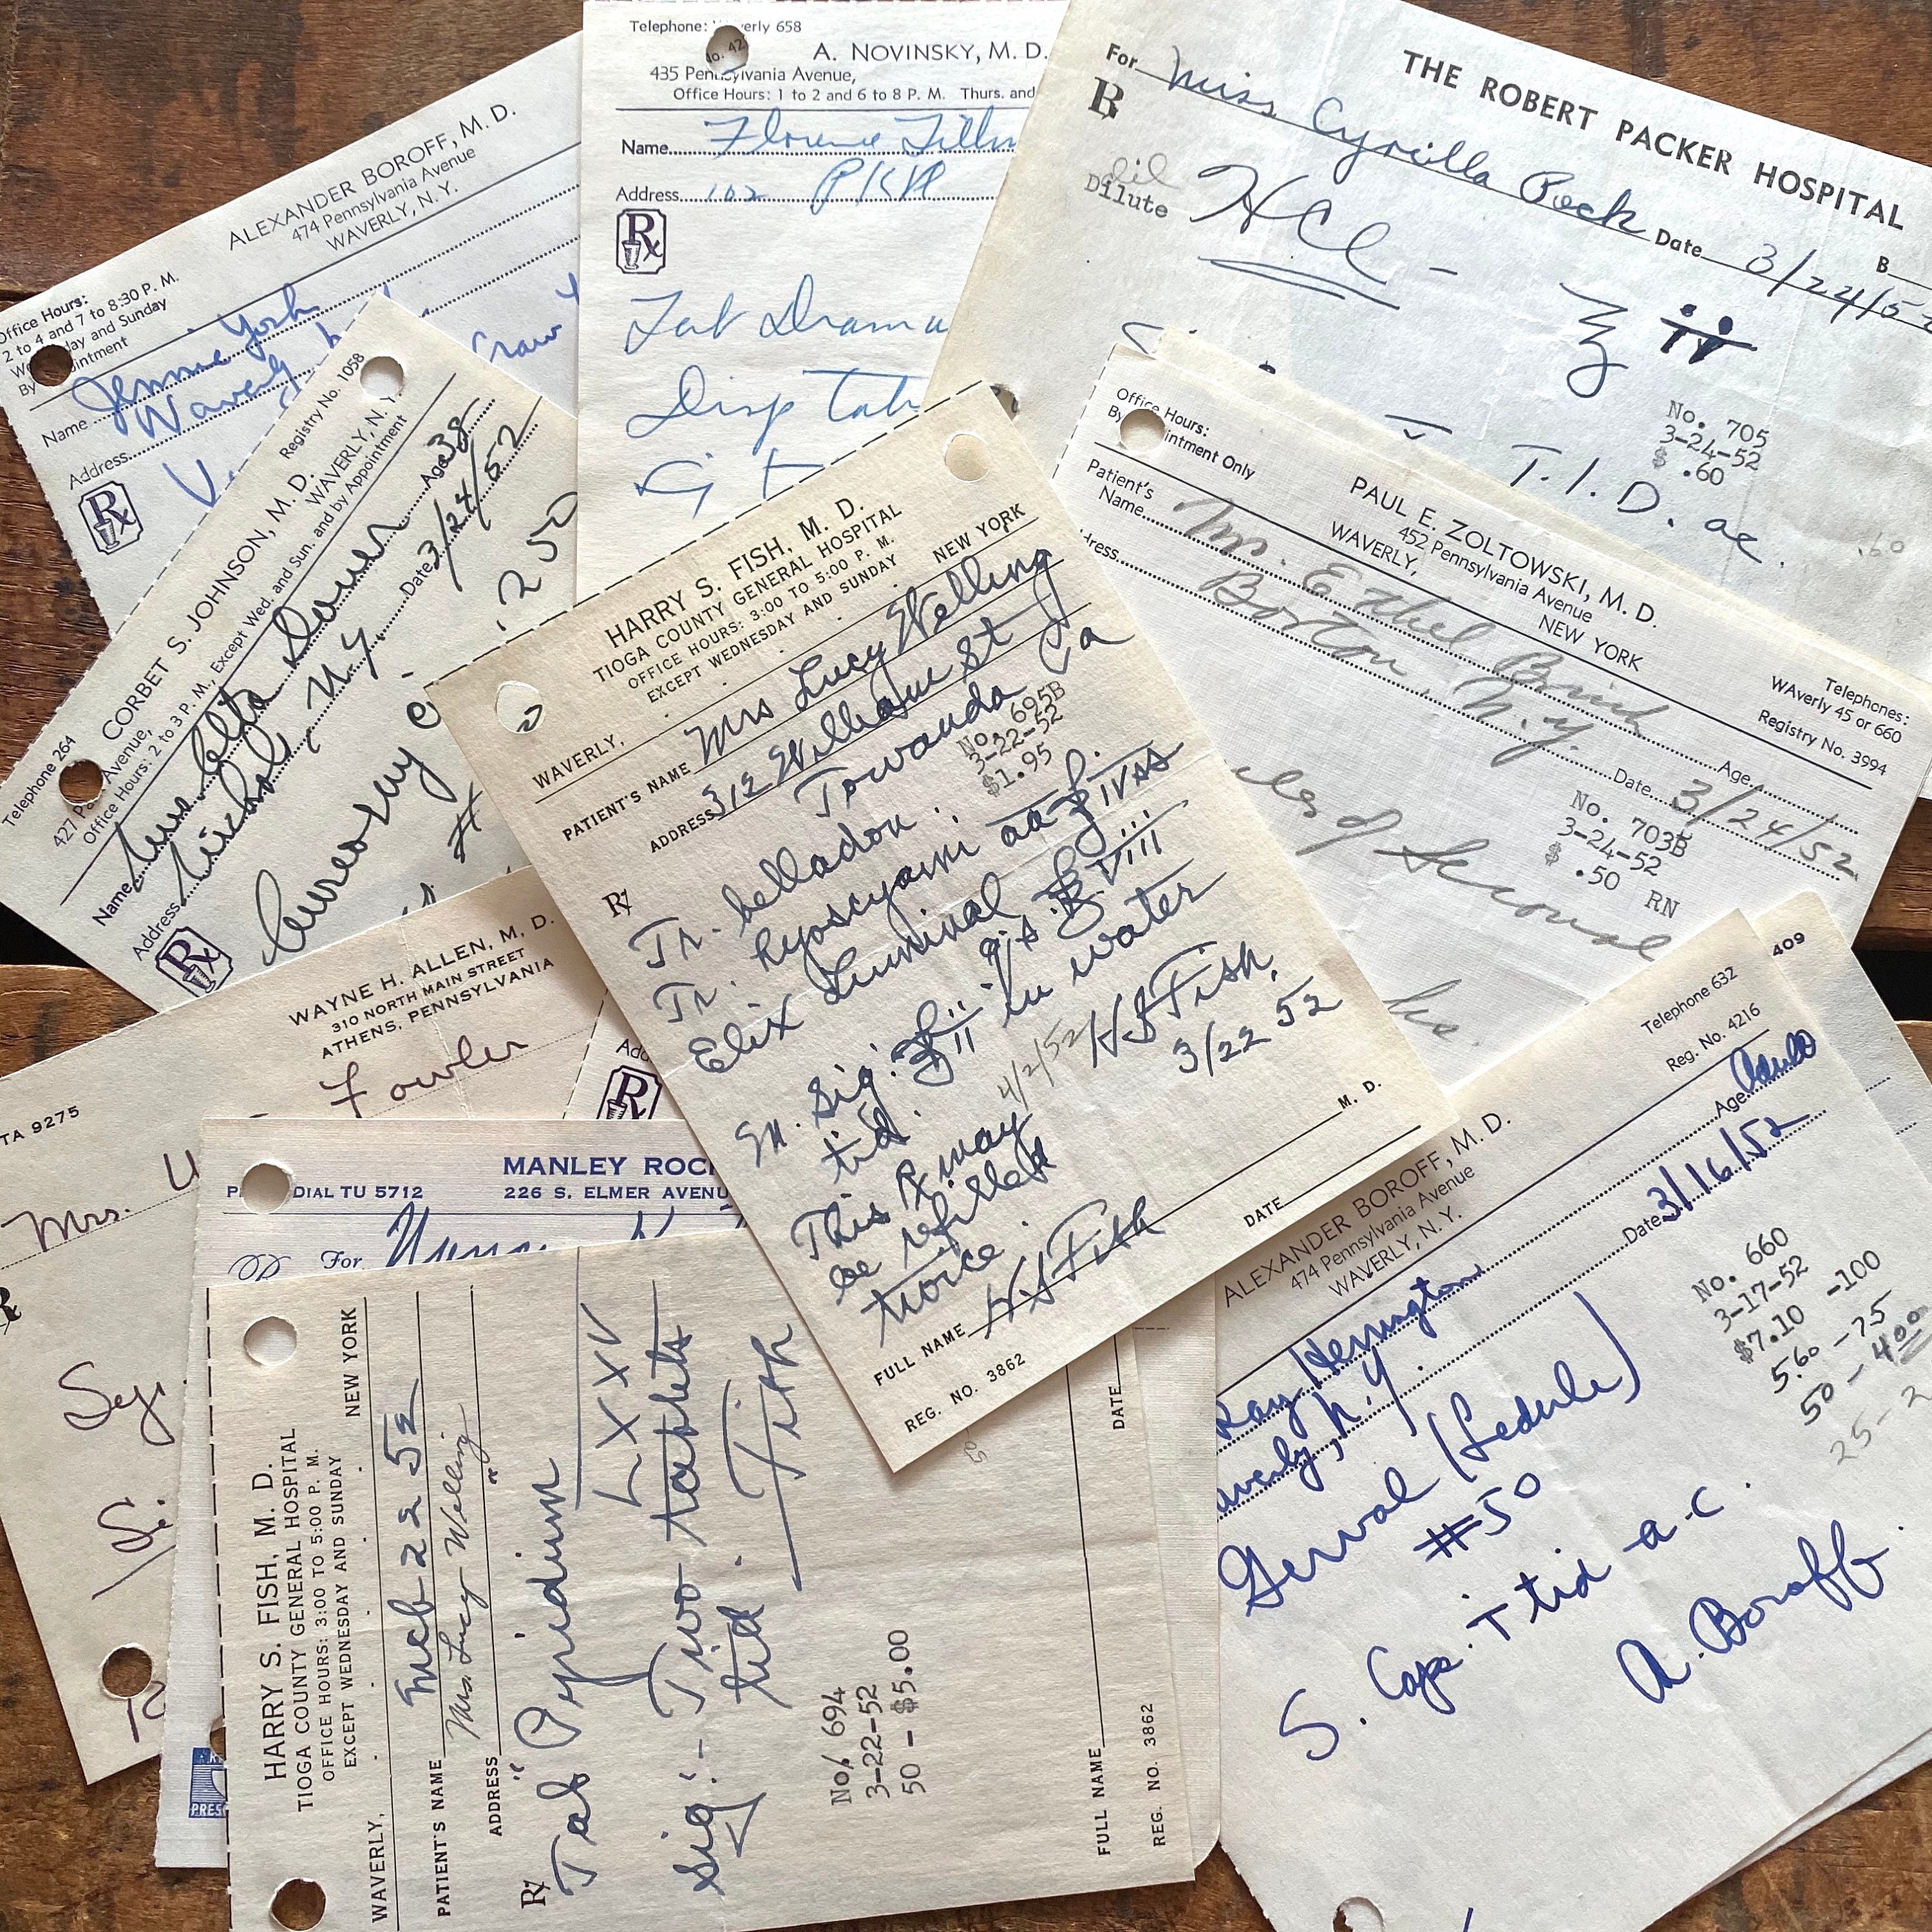 ALEXANDER BOROFF, M. D.
474 Pennsylvania Avenue
WAVERLY, N. Y.
Office Hours:
2 to 4 and 7 to 8:30 P. M.
day and Sunday
By
Name Jennie York
Address Waverly
Rx
Telephone: Waverly 658
No. 42
A. NOVINSKY, M. D.
435 Pennsylvania Avenue,
Office Hours: 1 to 2 and 6 to 8 P. M. Thurs. and
Name Florence
Address 102
Rx
Disp Tab
THE ROBERT PACKER HOSPITAL
For Miss Cyrilla Peck Date 3/24/5
Rx
dil
Dilute
HCl -
No. 705
3-24-52
$ .60
T.I.D. ac.
.60
Registry No. 1058
CORBET S. JOHNSON, M. D.
WAVERLY, N. Y.
Telephone 264
427 Pa Avenue,
Office Hours: 2 to 3 P. M., Except Wed. and Sun. and by Appointment
Name Age 38
Address Nichols, N.Y. Date 3/24/52
Rx
Aureomycin
.250
#
Office Hours:
By Appointment Only
PAUL E. ZOLTOWSKI, M. D.
452 Pennsylvania Avenue
WAVERLY, NEW YORK
Telephones:
WAverly 45 or 660
Registry No. 3994
Patient's
Name Mrs. Ethel Brink Age
dress Barton N.Y. Date 3/24/52
No. 703B
3-24-52
$ .50 RN
of Seconal
HARRY S. FISH, M. D.
TIOGA COUNTY GENERAL HOSPITAL
OFFICE HOURS: 3:00 TO 5:00 P. M.
EXCEPT WEDNESDAY AND SUNDAY
WAVERLY, NEW YORK
PATIENT'S NAME Mrs Lucy Welling
ADDRESS 312 William St
Towanda Pa
No. 695B
3-22-52
$1.95
Rx
Tr. belladon.
Tr. hyoscyami aa ʒ ivss
Elix Luminal q.s. ℥ viii
M. Sig: ʒ ii in water
tid.
4/2/52 HSFish,
3/22 52
This Rx may
be refilled
twice.
M. D.
FULL NAME HSFish
DATE
REG. NO. 3862
WAYNE H. ALLEN, M. D.
310 NORTH MAIN STREET
ATHENS, PENNSYLVANIA
TA 9275
Fowler
Mrs.
MANLEY ROC
DIAL TU 5712
226 S. ELMER AVENU
For
HARRY S. FISH, M. D.
TIOGA COUNTY GENERAL HOSPITAL
OFFICE HOURS: 3:00 TO 5:00 P. M.
EXCEPT WEDNESDAY AND SUNDAY
WAVERLY, NEW YORK
Mch 22 52
PATIENT'S NAME Mrs. Lucy Welling
ADDRESS
Rx
Tab "Pyridium"
LXXV
Sig:- Two tablets
tid.
Fish
No. 694
3-22-52
50 - $5.00
FULL NAME
DATE
REG. NO. 3862
409
Telephone 632
Reg. No. 4216
ALEXANDER BOROFF, M. D.
474 Pennsylvania Avenue
WAVERLY, N. Y.
Age Adult
Ray Herrington
Date 3/16/52
averly, N.Y.
No. 660
3-17-52
$7.10 -100
5.60 - 75
50 - 4.00
25 - 2
Gerval (Lederle)
#50
S. Caps. T tid a.c.
A. Boroff.